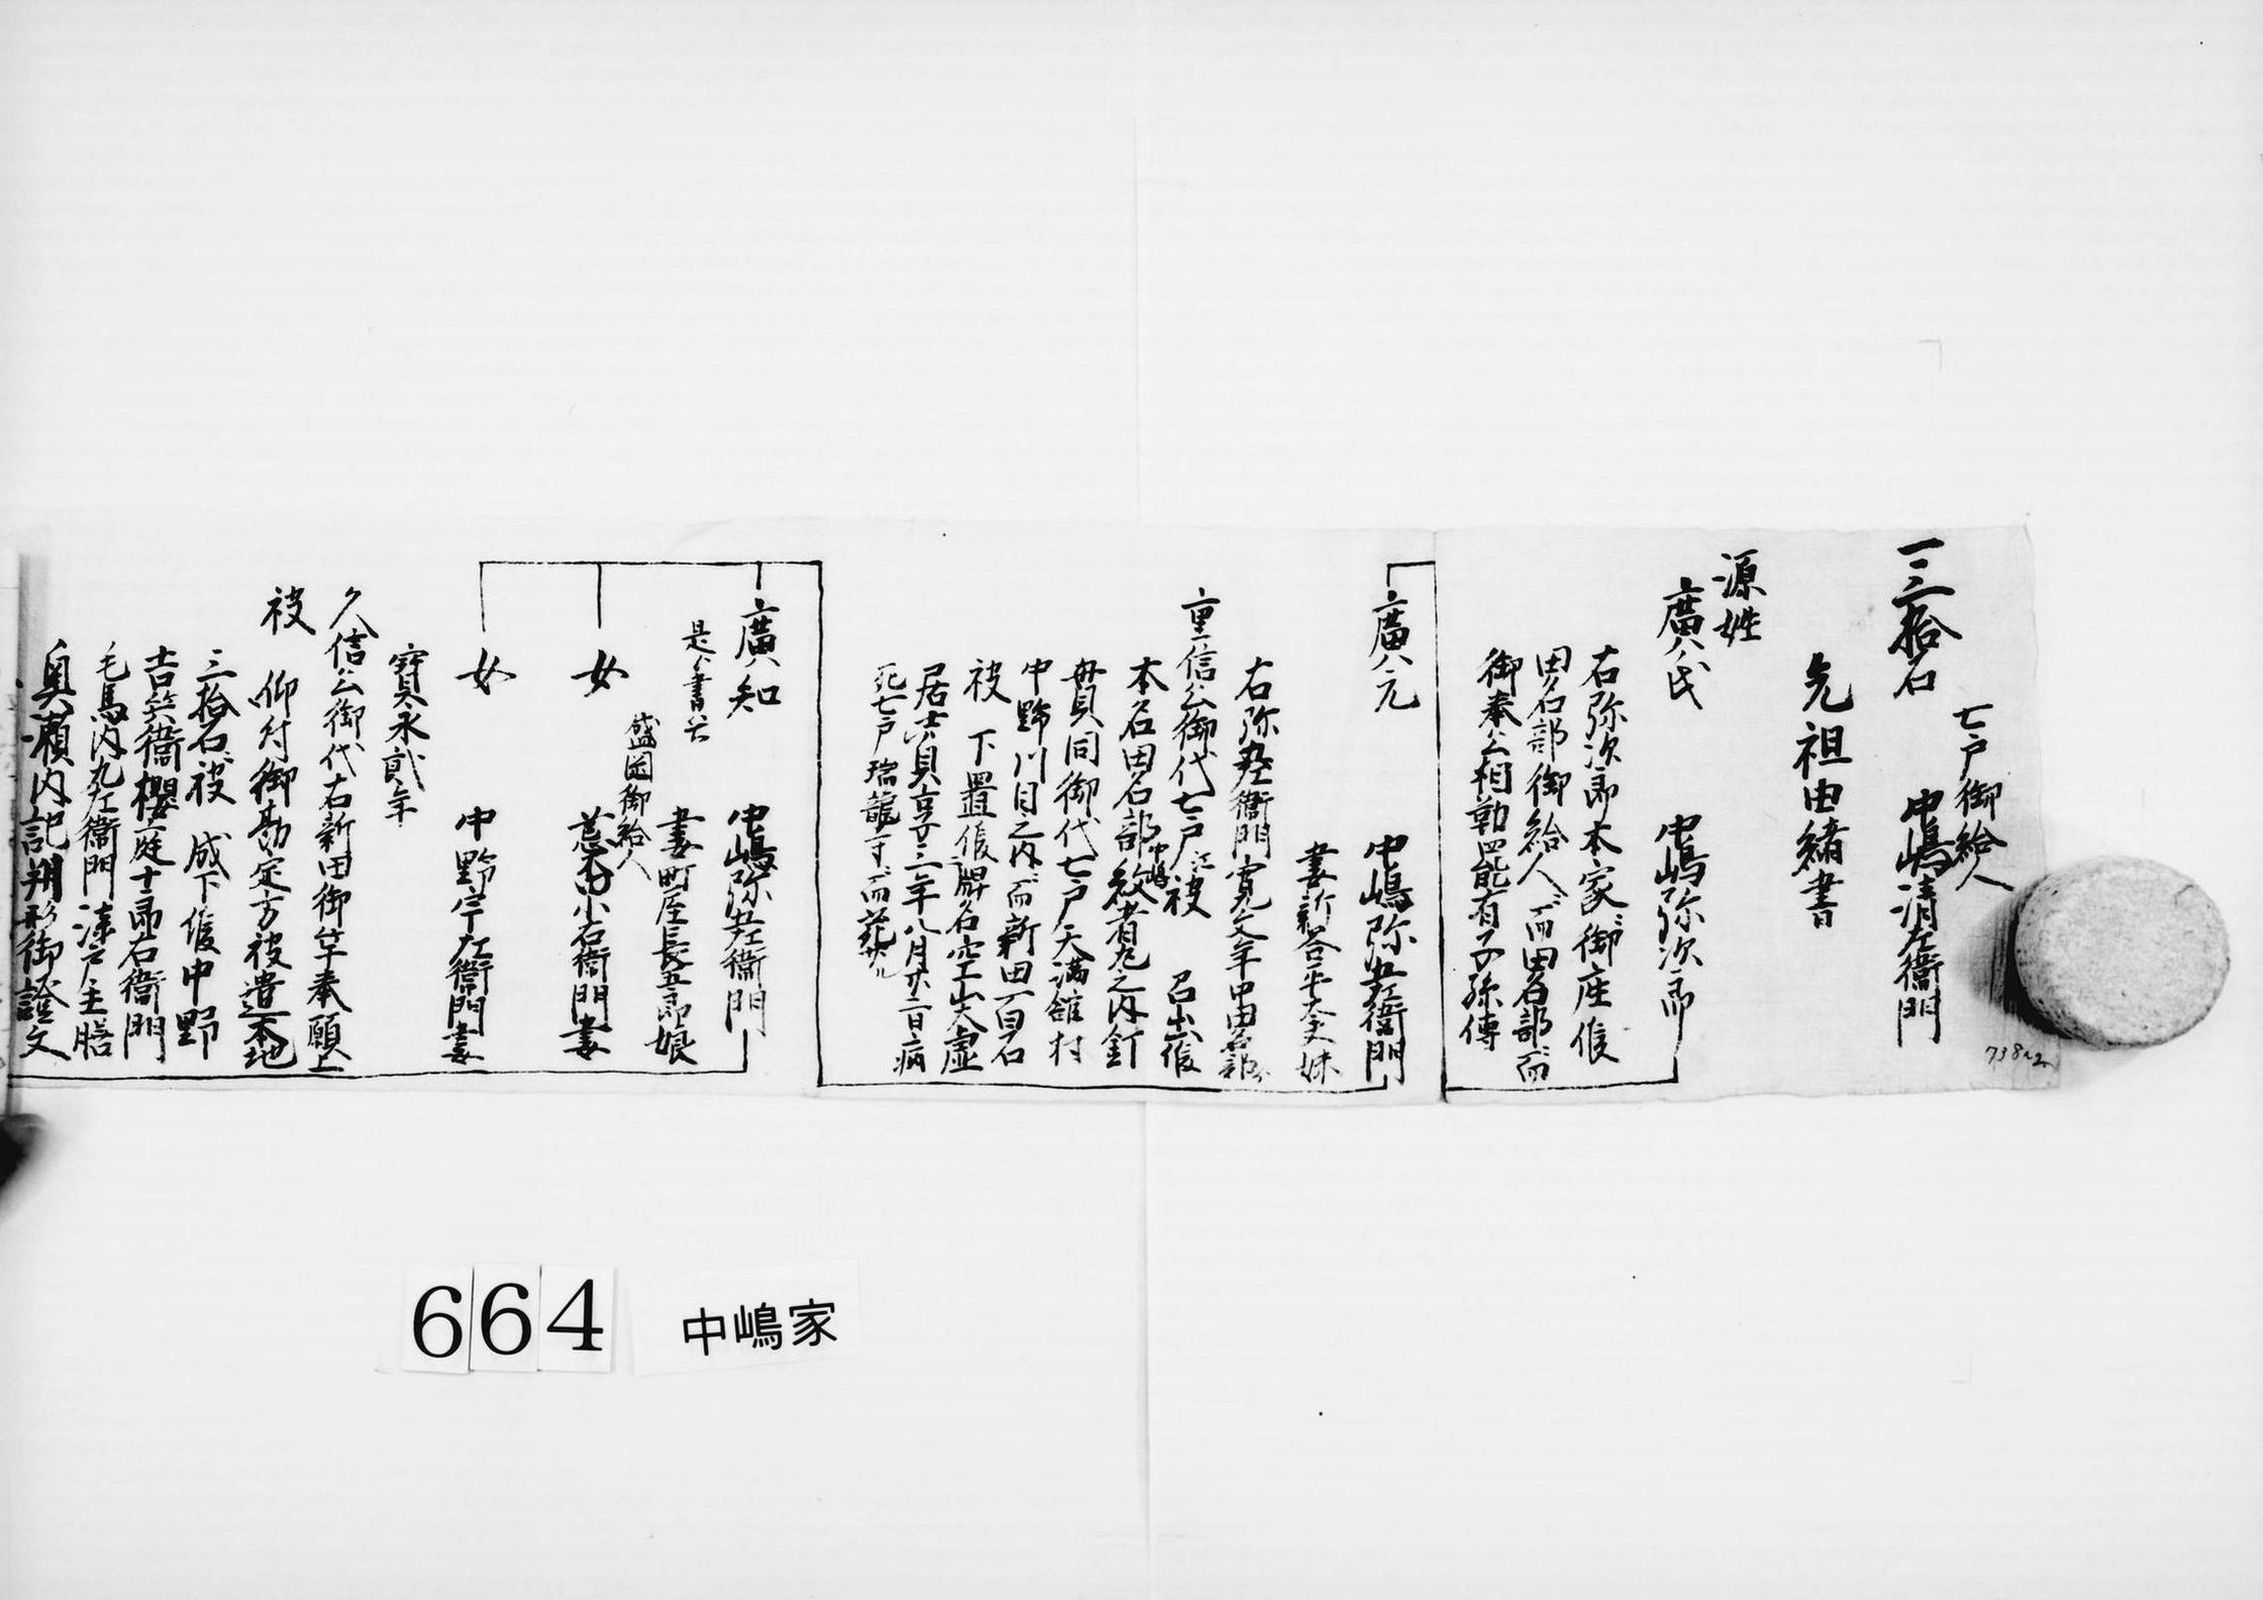 一三拾石
七戸御給人
中嶋清左衛門
738-2
先祖由緒書
源姓
廣氏
中嶋弥次郎
右弥次郎本家ニ御座候
田名部御給人ニ而田名部ニ而
御奉公相勤罷有子孫傳
廣元
中嶋弥五左衛門
妻新谷平太夫妹
右弥五左衛門寛文年中田名部ゟ
重信公御代七戸江被 召出候
本名田名部
中嶋
之内釘
貫同御代七戸天満舘村
中野川目之内ニ而新田百石
被 下置候牌名空山大虚
居士貞享三年八月廿二日病
死七戸瑞龍寺ニ而葬ル
廣知
中嶋弥五左衛門
是ゟ書出
妻町屋長五郎娘
盛岡御給人
女
小右衛門妻
女
中野左衛門妻
寶永貮年
久信公御代右新田御竿奉願上
被 仰付御勘定方被遣本地
三拾石被 成下候中野
吉兵衛櫻庭十郎右衛門
毛馬内九左衛門漆戸主膳
奥瀬内記判形御證文
664
中嶋家